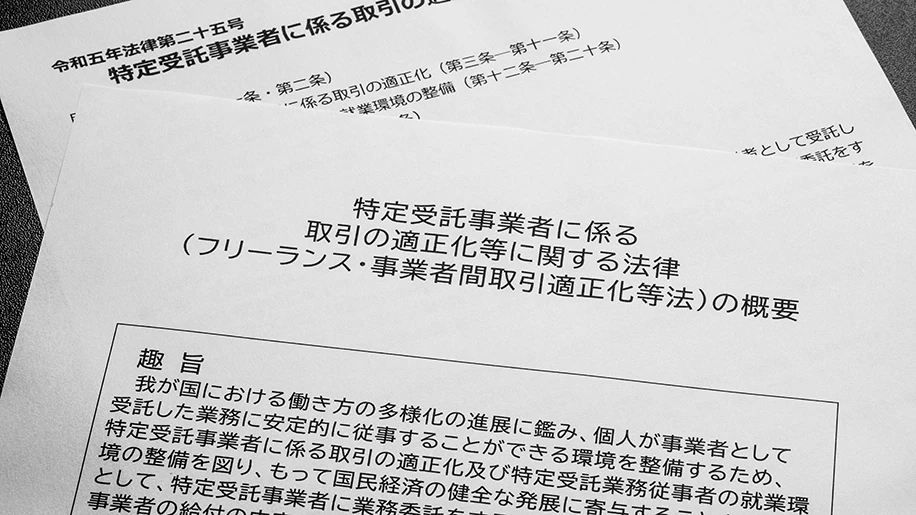 令和五年法律第二十五号
特定受託事業者に係る取引の適
条・第二条)
に係る取引の適正化(第三条―第十一条)
就業環境の整備(第十二条―第二十条)
条)
者として受託し
委託をす
を
特定受託事業者に係る
取引の適正化等に関する法律
(フリーランス・事業者間取引適正化等法)の概要
趣 旨
我が国における働き方の多様化の進展に鑑み、個人が事業者として
受託した業務に安定的に従事することができる環境を整備するため、
特定受託事業者に係る取引の適正化及び特定受託業務従事者の就業環
境の整備を図り、もって国民経済の健全な発展に寄与すること
として、特定受託事業者に業務委託をす
事業者の給付の内